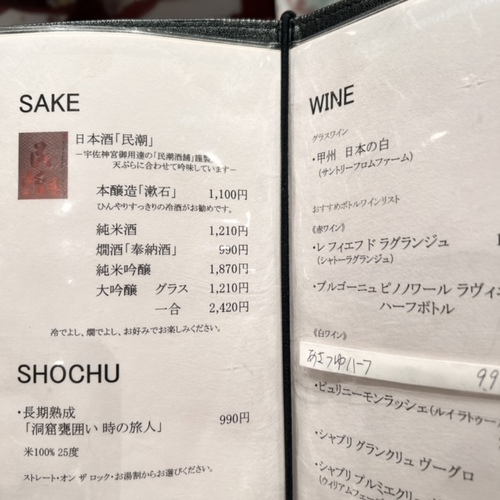 SAKE
日本酒「民潮」
－宇佐神宮御用達の「民潮酒舗」謹製
天ぷらに合わせて吟味しています－
本醸造「漱石」 1,100円
ひんやりすっきりの冷酒がお勧めです。
純米酒 1,210円
燗酒「奉納酒」 990円
純米吟醸 1,870円
大吟醸 グラス 1,210円
一合 2,420円
冷でよし、燗でよし、お好みでお楽しみください。
SHOCHU
・長期熟成
「洞窟甕囲い 時の旅人」 990円
米100% 25度
ストレート・オン ザ ロック・お湯割からお選びください。
WINE
グラスワイン
・甲州 日本の白
(サントリーフロムファーム)
おすすめボトルワインリスト
《赤ワイン》
・レ フィエフ ド ラグランジュ
(シャトーラグランジュ)
・ブルゴーニュ ピノノワール ラヴィ
ハーフボトル
《白ワイン》
あさつゆハーフ 9.9
・ピュリニーモンラッシェ(ルイラトゥー
・シャブリ グランクリュ ヴーグロ
・シャブリ プルミエクリュ
(ウィリアムフェーブル